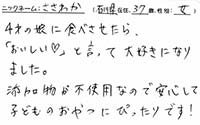 ニックネーム:ささわか (石川県在住、37歳、性別:女)
4才の娘に食べさせたら、
「おいしい♡」と言って大好きになり
ました。
添加物が不使用なので安心して
子どものおやつにぴったりです!